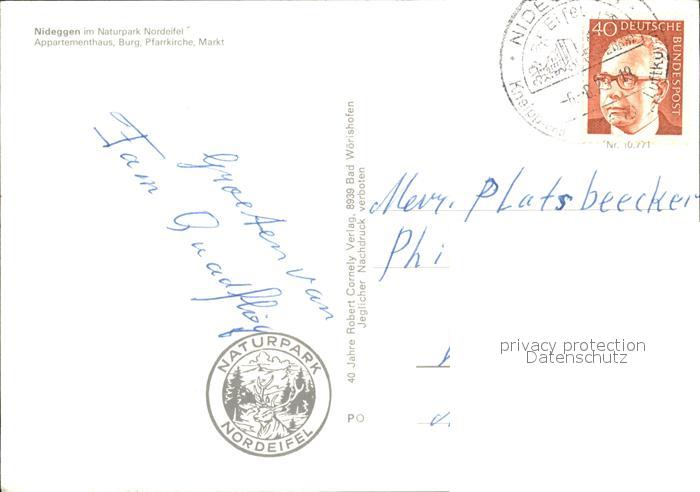 Nideggen im Naturpark Nordeifel
Appartementhaus, Burg, Pfarrkirche, Markt
Groeten van
Fam Quadflieg
40 Jahre Robert Cornely Verlag, 8939 Bad Wörishofen
Jeglicher Nachdruck verboten
NATURPARK
NORDEIFEL
PO
40 DEUTSCHE
BUNDESPOST
NIDE
Eifel
Luftkur
Nr. 10.771
Platsbeecker
Phi
privacy protection
Datenschutz